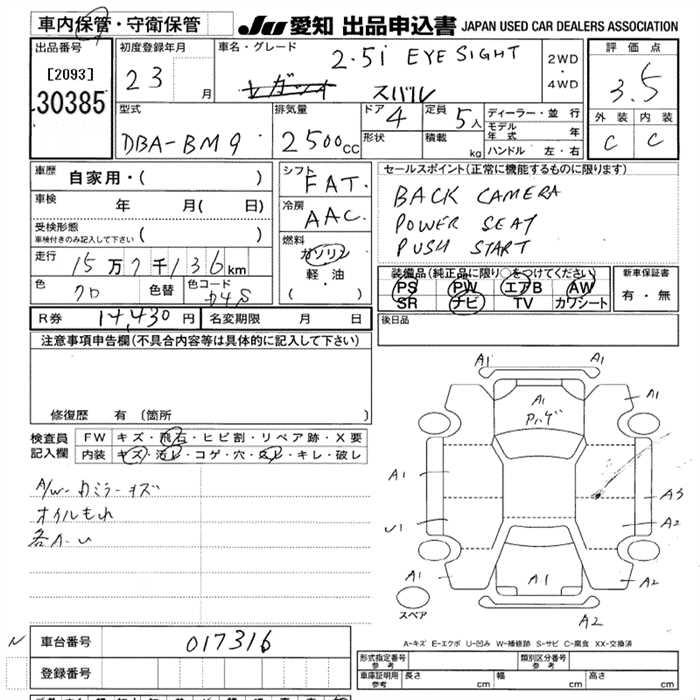 車内保管・守衛保管
JU 愛知 出品申込書 JAPAN USED CAR DEALERS ASSOCIATION
出品番号
[2093]
30385
初度登録年月
23 月
車名・グレード
2.5i EYE SIGHT
レガシィ スバル
2WD
・
4WD
評価点
3.5
外装 内装
C C
型式
DBA-BM9
排気量
2500cc
ドア 4
形状
定員 5人
積載 kg
ディーラー・並行
モデル年式 年
ハンドル 左・右
車歴
自家用・( )
車検
年 月( 日)
受検形態
車検付きのみ記入して下さい ( )
走行
15万7千136km
色
クロ
色替
色コード
D4S
シフト
FAT.
冷房
AAC.
燃料
ガソリン
軽・油
( ・ )
セールスポイント(正常に機能するものに限ります)
BACK CAMERA
POWER SEAT
PUSH START
装備品(純正品に限り○をつけてください)
PS PW エアB AW
SR ナビ TV カワシート
新車保証書
有・無
R券 14,430円
名変期限 月 日
後日品
注意事項申告欄(不具合内容等は具体的に記入して下さい)
修復歴 有(箇所 )
検査員
記入欄
FW キズ・飛石・ヒビ割・リペア跡・X要
内装 キズ・汚レ・コゲ・穴・スレ・キレ・破レ
A/W・カミラーキズ
オイルもれ
各A-U
A1 A1
A1
Pハゲ
A1
A1
A3
U1
A2
A1
A1
A2
スペア
A2
A-キズ E-エクボ U-凹み W-補修跡 S-サビ C-腐食 XX-交換済
N
車台番号 017316
登録番号
形式指定番号
参考
類別区分番号
参考
車庫証明用
参考
長さ cm
幅 cm
高さ cm